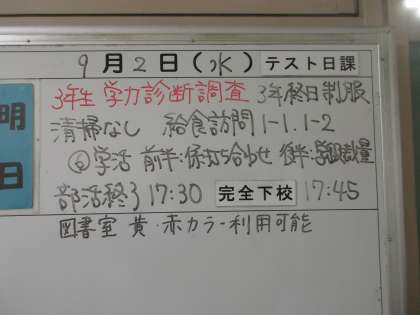 明日
9月2日(水) テスト日課
3年生 学力診断調査 3年終日制服
清掃なし 給食訪問 1-1.1-2
⑥学活 前半:係打ち合わせ 後半:裁量
部活終了17:30 完全下校 17:45
図書室 黄・赤カラー利用可能